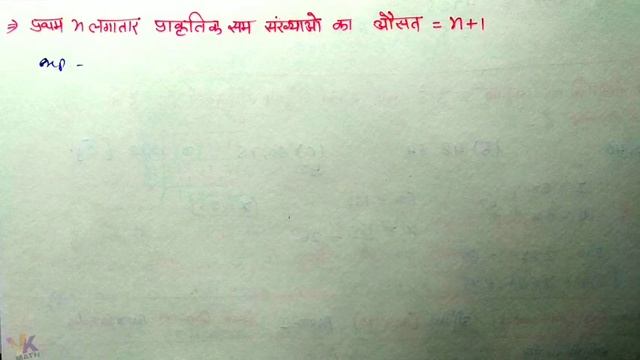 ⇒ प्रथम n लगातार प्राकृतिक सम संख्याओ का औसत = n+1
VK
MATH